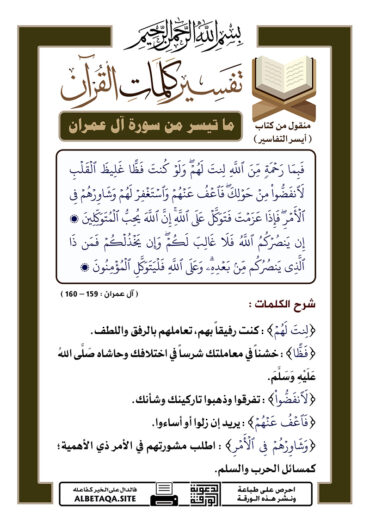 بِسْمِ اللَّهِ الرَّحْمَنِ الرَّحِيمِ
تفسير كلمات القرآن
ما تيسر من سورة آل عمران
منقول من كتاب
( أيسر التفاسير )
فَبِمَا رَحْمَةٍ مِّنَ ٱللَّهِ لِنتَ لَهُمْۖ وَلَوْ كُنتَ فَظًّا غَلِيظَ ٱلْقَلْبِ
لَٱنفَضُّوا۟ مِنْ حَوْلِكَۖ فَٱعْفُ عَنْهُمْ وَٱسْتَغْفِرْ لَهُمْ وَشَاوِرْهُمْ فِى
ٱلْأَمْرِۖ فَإِذَا عَزَمْتَ فَتَوَكَّلْ عَلَى ٱللَّهِۚ إِنَّ ٱللَّهَ يُحِبُّ ٱلْمُتَوَكِّلِينَ
إِن يَنصُرْكُمُ ٱللَّهُ فَلَا غَالِبَ لَكُمْۖ وَإِن يَخْذُلْكُمْ فَمَن ذَا
ٱلَّذِى يَنصُرُكُم مِّنۢ بَعْدِهِۦۗ وَعَلَى ٱللَّهِ فَلْيَتَوَكَّلِ ٱلْمُؤْمِنُونَ
( آل عمران : 159 – 160 )
شرح الكلمات :
﴿لِنتَ لَهُمْ﴾ : كنت رفيقاً بهم، تعاملهم بالرفق واللطف.
﴿فَظًّا﴾ : خشناً في معاملتك شرساً في اختلافك وحاشاه صَلَّى اللهُ
عَلَيْهِ وَسَلَّمَ.
﴿لَٱنفَضُّوا۟﴾ : تفرقوا وذهبوا تاركينك وشأنك.
﴿فَٱعْفُ عَنْهُمْ﴾ : يريد إن زلوا أو أساءوا.
﴿وَشَاوِرْهُمْ فِى ٱلْأَمْرِ﴾ : اطلب مشورتهم في الأمر ذي الأهمية؛
كمسائل الحرب والسلم.
احرص على طباعة
ونشر هذه الورقة
الدعوية
الورقة
فالدال على الخير كفاعله
ALBETAQA.SITE